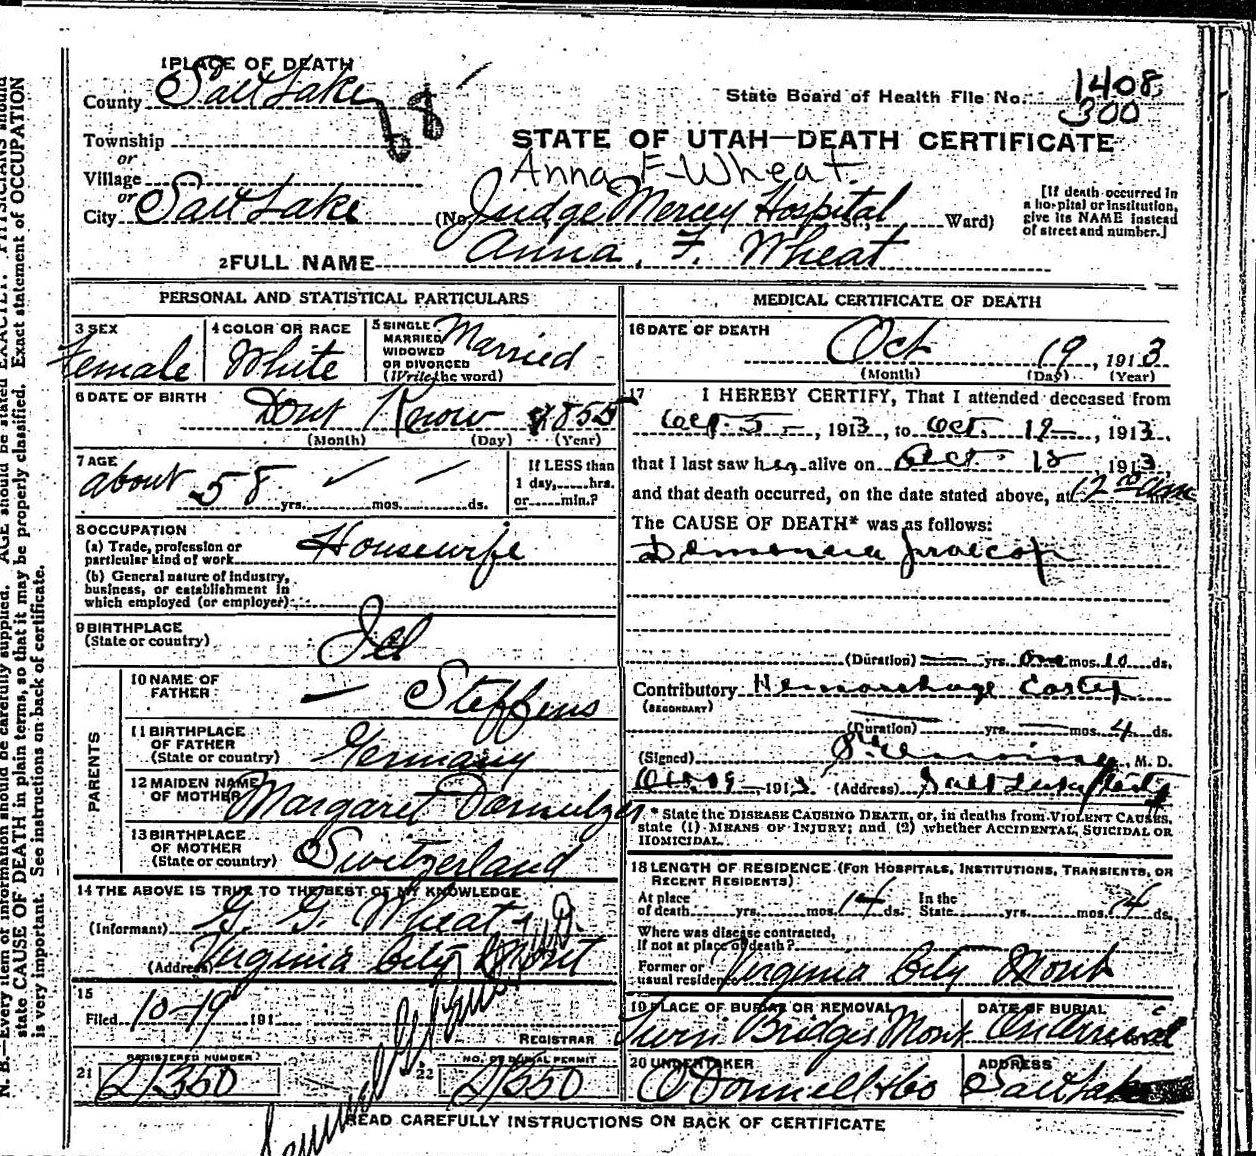 1 PLACE OF DEATH
County Salt Lake
68
State Board of Health File No. 1408
300
Township
or
Village
or
City Salt Lake
STATE OF UTAH—DEATH CERTIFICATE
Anna F Wheat
(No. Judge Mercey Hospital St., Ward)
[If death occurred in
a hospital or institution,
give its NAME instead
of street and number.]
2 FULL NAME Anna. F. Wheat
PERSONAL AND STATISTICAL PARTICULARS
3 SEX
Female
4 COLOR OR RACE
White
5 SINGLE
MARRIED
WIDOWED
OR DIVORCED
(Write the word)
Married
6 DATE OF BIRTH
Dont Know 1855
(Month) (Day) (Year)
7 AGE
about 58 yrs. mos. ds.
If LESS than
1 day, hrs.
or min.?
8 OCCUPATION
(a) Trade, profession or
particular kind of work Housewife
(b) General nature of industry,
business, or establishment in
which employed (or employer)
9 BIRTHPLACE
(State or country)
PARENTS
10 NAME OF
FATHER — Steffens
11 BIRTHPLACE
OF FATHER
(State or country) Germany
12 MAIDEN NAME
OF MOTHER Margaret
13 BIRTHPLACE
OF MOTHER
(State or country) Switzerland
14 THE ABOVE IS TRUE TO THE BEST OF MY KNOWLEDGE
(Informant) G. G. Wheat
(Address) Virginia City Mont
15
Filed 10-19 191
REGISTRAR
21 REGISTERED NUMBER
21350
22 NO. OF BURIAL PERMIT
21350
MEDICAL CERTIFICATE OF DEATH
16 DATE OF DEATH
Oct 19, 1913
(Month) (Day) (Year)
17 I HEREBY CERTIFY, That I attended deceased from
1913, to Oct. 19, 1913.
that I last saw her alive on Oct 18 1913,
and that death occurred, on the date stated above, at 12
The CAUSE OF DEATH* was as follows:
(Duration) — yrs. one mos. 10 ds.
Contributory Hemorrhage
(SECONDARY)
(Duration) yrs. mos. 4 ds.
(Signed) , M. D.
Oct. 19 1913 (Address) Salt Lake City
* State the DISEASE CAUSING DEATH, or, in deaths from VIOLENT CAUSES,
state (1) MEANS OF INJURY; and (2) whether ACCIDENTAL, SUICIDAL OR
HOMICIDAL.
18 LENGTH OF RESIDENCE (FOR HOSPITALS, INSTITUTIONS, TRANSIENTS, OR
RECENT RESIDENTS)
At place
of death yrs. mos. 14 ds.
In the
State yrs. mos. 14 ds.
Where was disease contracted,
if not at place of death?
Former or
usual residence Virginia City Mont
19 PLACE OF BURIAL OR REMOVAL
Twin Bridges Mont
DATE OF BURIAL
On arrival
20 UNDERTAKER
O'Donnell & Co
ADDRESS
Salt Lake
READ CAREFULLY INSTRUCTIONS ON BACK OF CERTIFICATE
N. B.—Every item of information should be carefully supplied. AGE should be stated EXACTLY. PHYSICIANS should
state CAUSE OF DEATH in plain terms, so that it may be properly classified. Exact statement of OCCUPATION
is very important. See instructions on back of certificate.